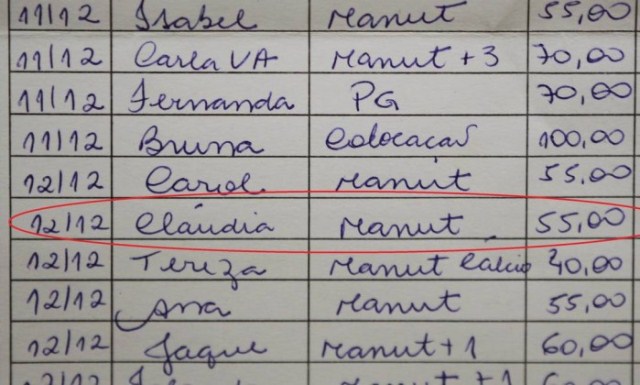 11/12 Isabel Manut 55,00
11/12 Carla VA Manut + 3 70,00
11/12 Fernanda PG 70,00
11/12 Bruna Colocaçaõ 100,00
12/12 Carol Manut 55,00
12/12 Claúdia Manut 55,00
12/12 Tereza Manut Calcio 40,00
12/12 Ana Manut 55,00
12/12 Jaque Manut + 1 60,00